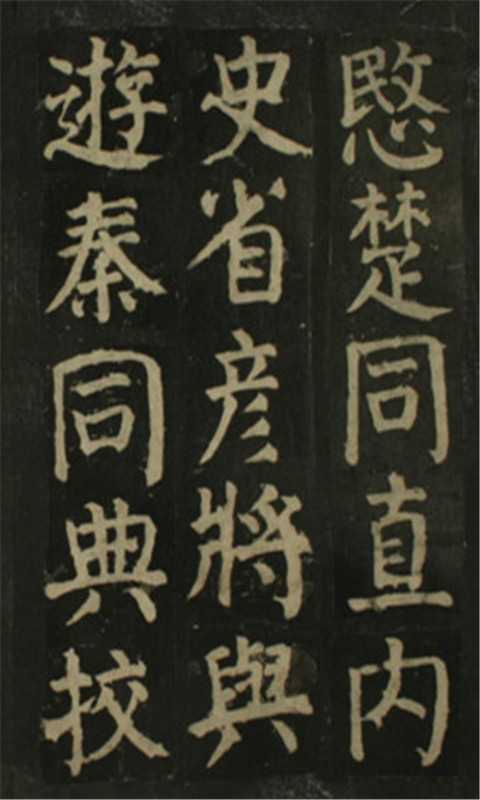 愍楚同直内
史省彦將與
遊秦同典校